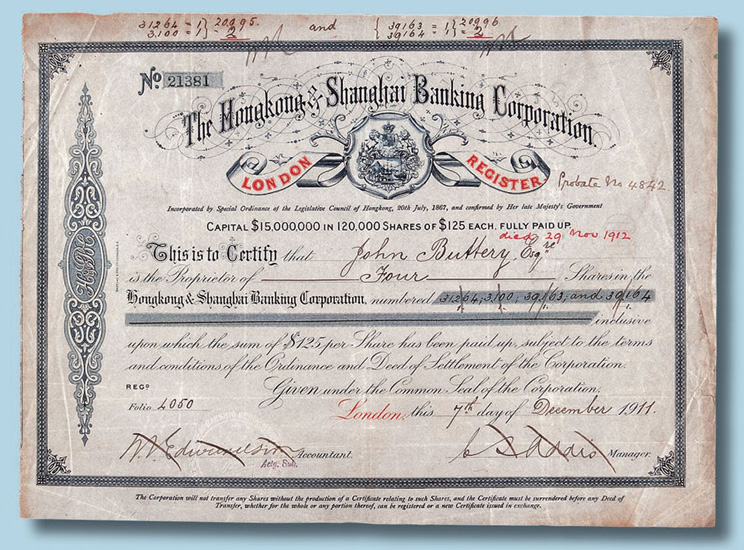 31264 = 1} 20995. and { 39163 = 1} 20996
3,100 = 1} = 2 { 39164 = 1} = 2
No 21381
The Hongkong & Shanghai Banking Corporation.
LONDON REGISTER
Probate No 4842.
Incorporated by Special Ordinance of the Legislative Council of Hongkong, 20th July, 1867, and confirmed by Her late Majesty's Government
CAPITAL $15,000,000 IN 120,000 SHARES OF $125 EACH, FULLY PAID UP.
died 29 Nov 1912
This is to Certify that John Buttery, Esqre
is the Proprietor of Four Shares in the
Hongkong & Shanghai Banking Corporation, numbered 31264, 3,100, 39163, and 39164
inclusive
upon which the sum of $125, per Share has been paid up, subject to the terms
and conditions of the Ordinance and Deed of Settlement of the Corporation.
REGD
Given under the Common Seal of the Corporation.
Folio 4050
London, this 7th day of December 1911.
Accountant. C S Addis Manager.
Actg. Sub.
The Corporation will not transfer any Shares without the production of a Certificate relating to such Shares, and the Certificate must be surrendered before any Deed of
Transfer, whether for the whole or any portion thereof, can be registered or a new Certificate issued in exchange.